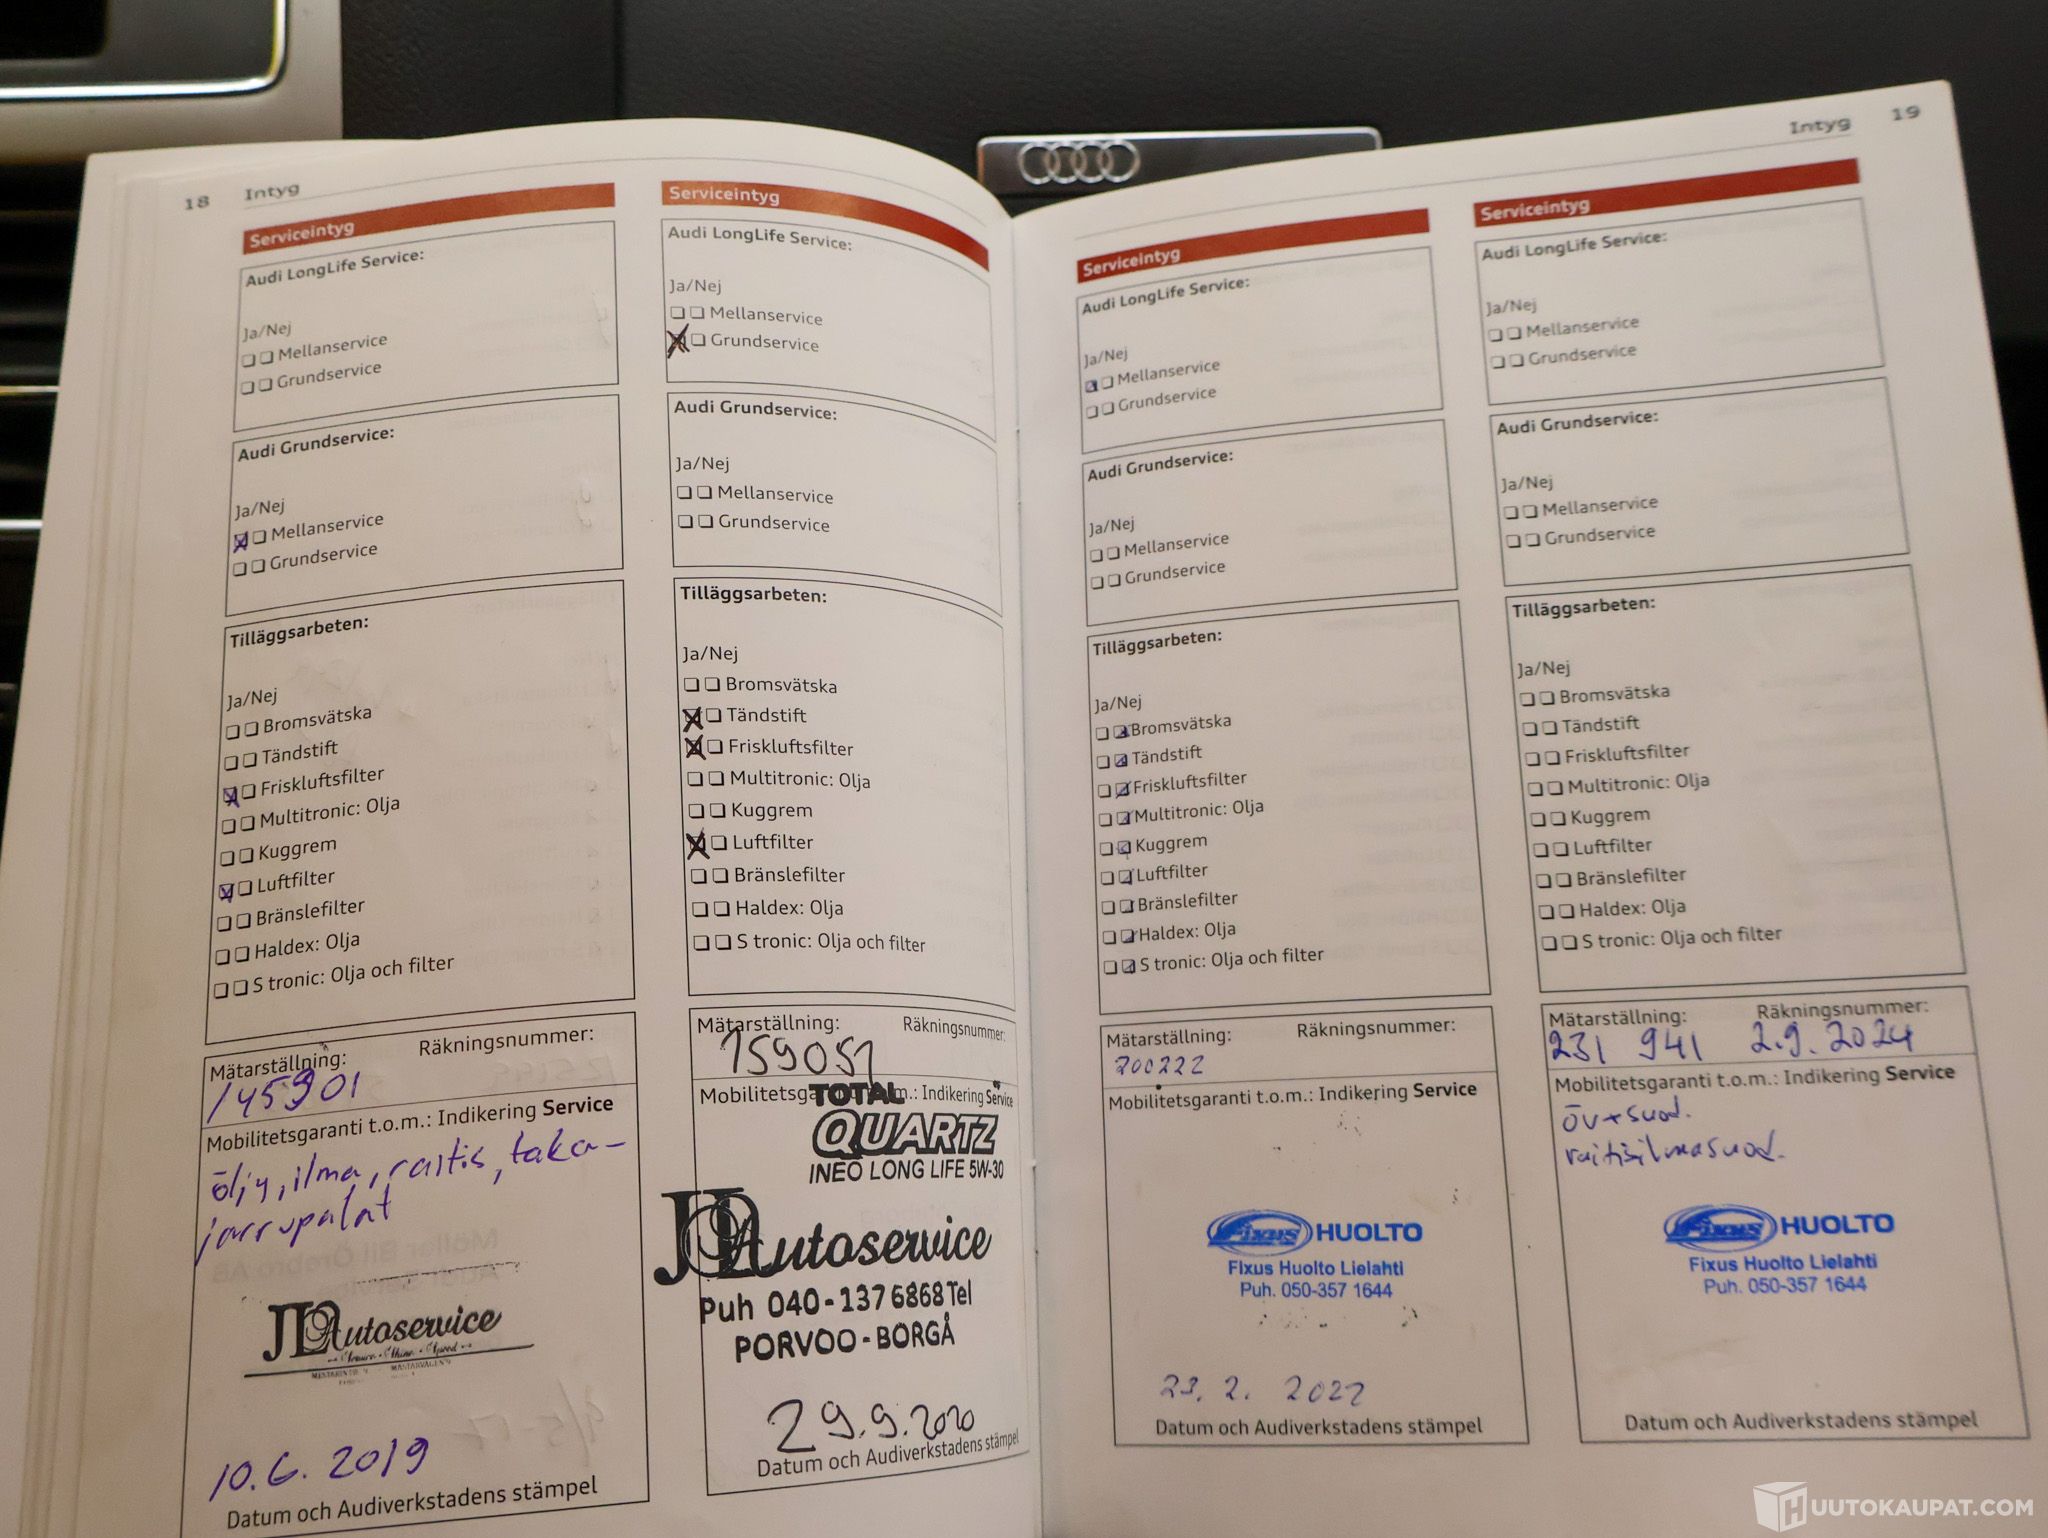 18 Intyg
Serviceintyg
Audi LongLife Service:
Ja/Nej
Mellanservice
Grundservice
Audi Grundservice:
Ja/Nej
Mellanservice
Grundservice
Tilläggsarbeten:
Ja/Nej
Bromsvätska
Tändstift
Friskluftsfilter
Multitronic: Olja
Kuggrem
Luftfilter
Bränslefilter
Haldex: Olja
S tronic: Olja och filter
Mätarställning: Räkningsnummer:
145901
Mobilitetsgaranti t.o.m.: Indikering Service
öljy, ilma, raitis, taka-
jarrupalat
JL Autoservice
10.6. 2019
Datum och Audiverkstadens stämpel
Serviceintyg
Audi LongLife Service:
Ja/Nej
Mellanservice
Grundservice
Audi Grundservice:
Ja/Nej
Mellanservice
Grundservice
Tilläggsarbeten:
Ja/Nej
Bromsvätska
Tändstift
Friskluftsfilter
Multitronic: Olja
Kuggrem
Luftfilter
Bränslefilter
Haldex: Olja
S tronic: Olja och filter
Mätarställning: Räkningsnummer:
159051
Mobilitetsga m.: Indikering Service
TOTAL
QUARTZ
INEO LONG LIFE 5W-30
JL Autoservice
Puh 040-1376868 Tel
PORVOO-BORGÅ
29.9.2020
Datum och Audiverkstadens stämpel
Intyg 19
Serviceintyg
Audi LongLife Service:
Ja/Nej
Mellanservice
Grundservice
Audi Grundservice:
Ja/Nej
Mellanservice
Grundservice
Tilläggsarbeten:
Ja/Nej
Bromsvätska
Tändstift
Friskluftsfilter
Multitronic: Olja
Kuggrem
Luftfilter
Bränslefilter
Haldex: Olja
S tronic: Olja och filter
Mätarställning: Räkningsnummer:
200222
Mobilitetsgaranti t.o.m.: Indikering Service
Fixus HUOLTO
Fixus Huolto Lielahti
Puh. 050-357 1644
23. 2. 2022
Datum och Audiverkstadens stämpel
Serviceintyg
Audi LongLife Service:
Ja/Nej
Mellanservice
Grundservice
Audi Grundservice:
Ja/Nej
Mellanservice
Grundservice
Tilläggsarbeten:
Ja/Nej
Bromsvätska
Tändstift
Friskluftsfilter
Multitronic: Olja
Kuggrem
Luftfilter
Bränslefilter
Haldex: Olja
S tronic: Olja och filter
Mätarställning: Räkningsnummer:
231 941 2.9.2024
Mobilitetsgaranti t.o.m.: Indikering Service
öv+suod.
raitisilmasuod.
Fixus HUOLTO
Fixus Huolto Lielahti
Puh. 050-357 1644
Datum och Audiverkstadens stämpel
HUUTOKAUPAT.COM